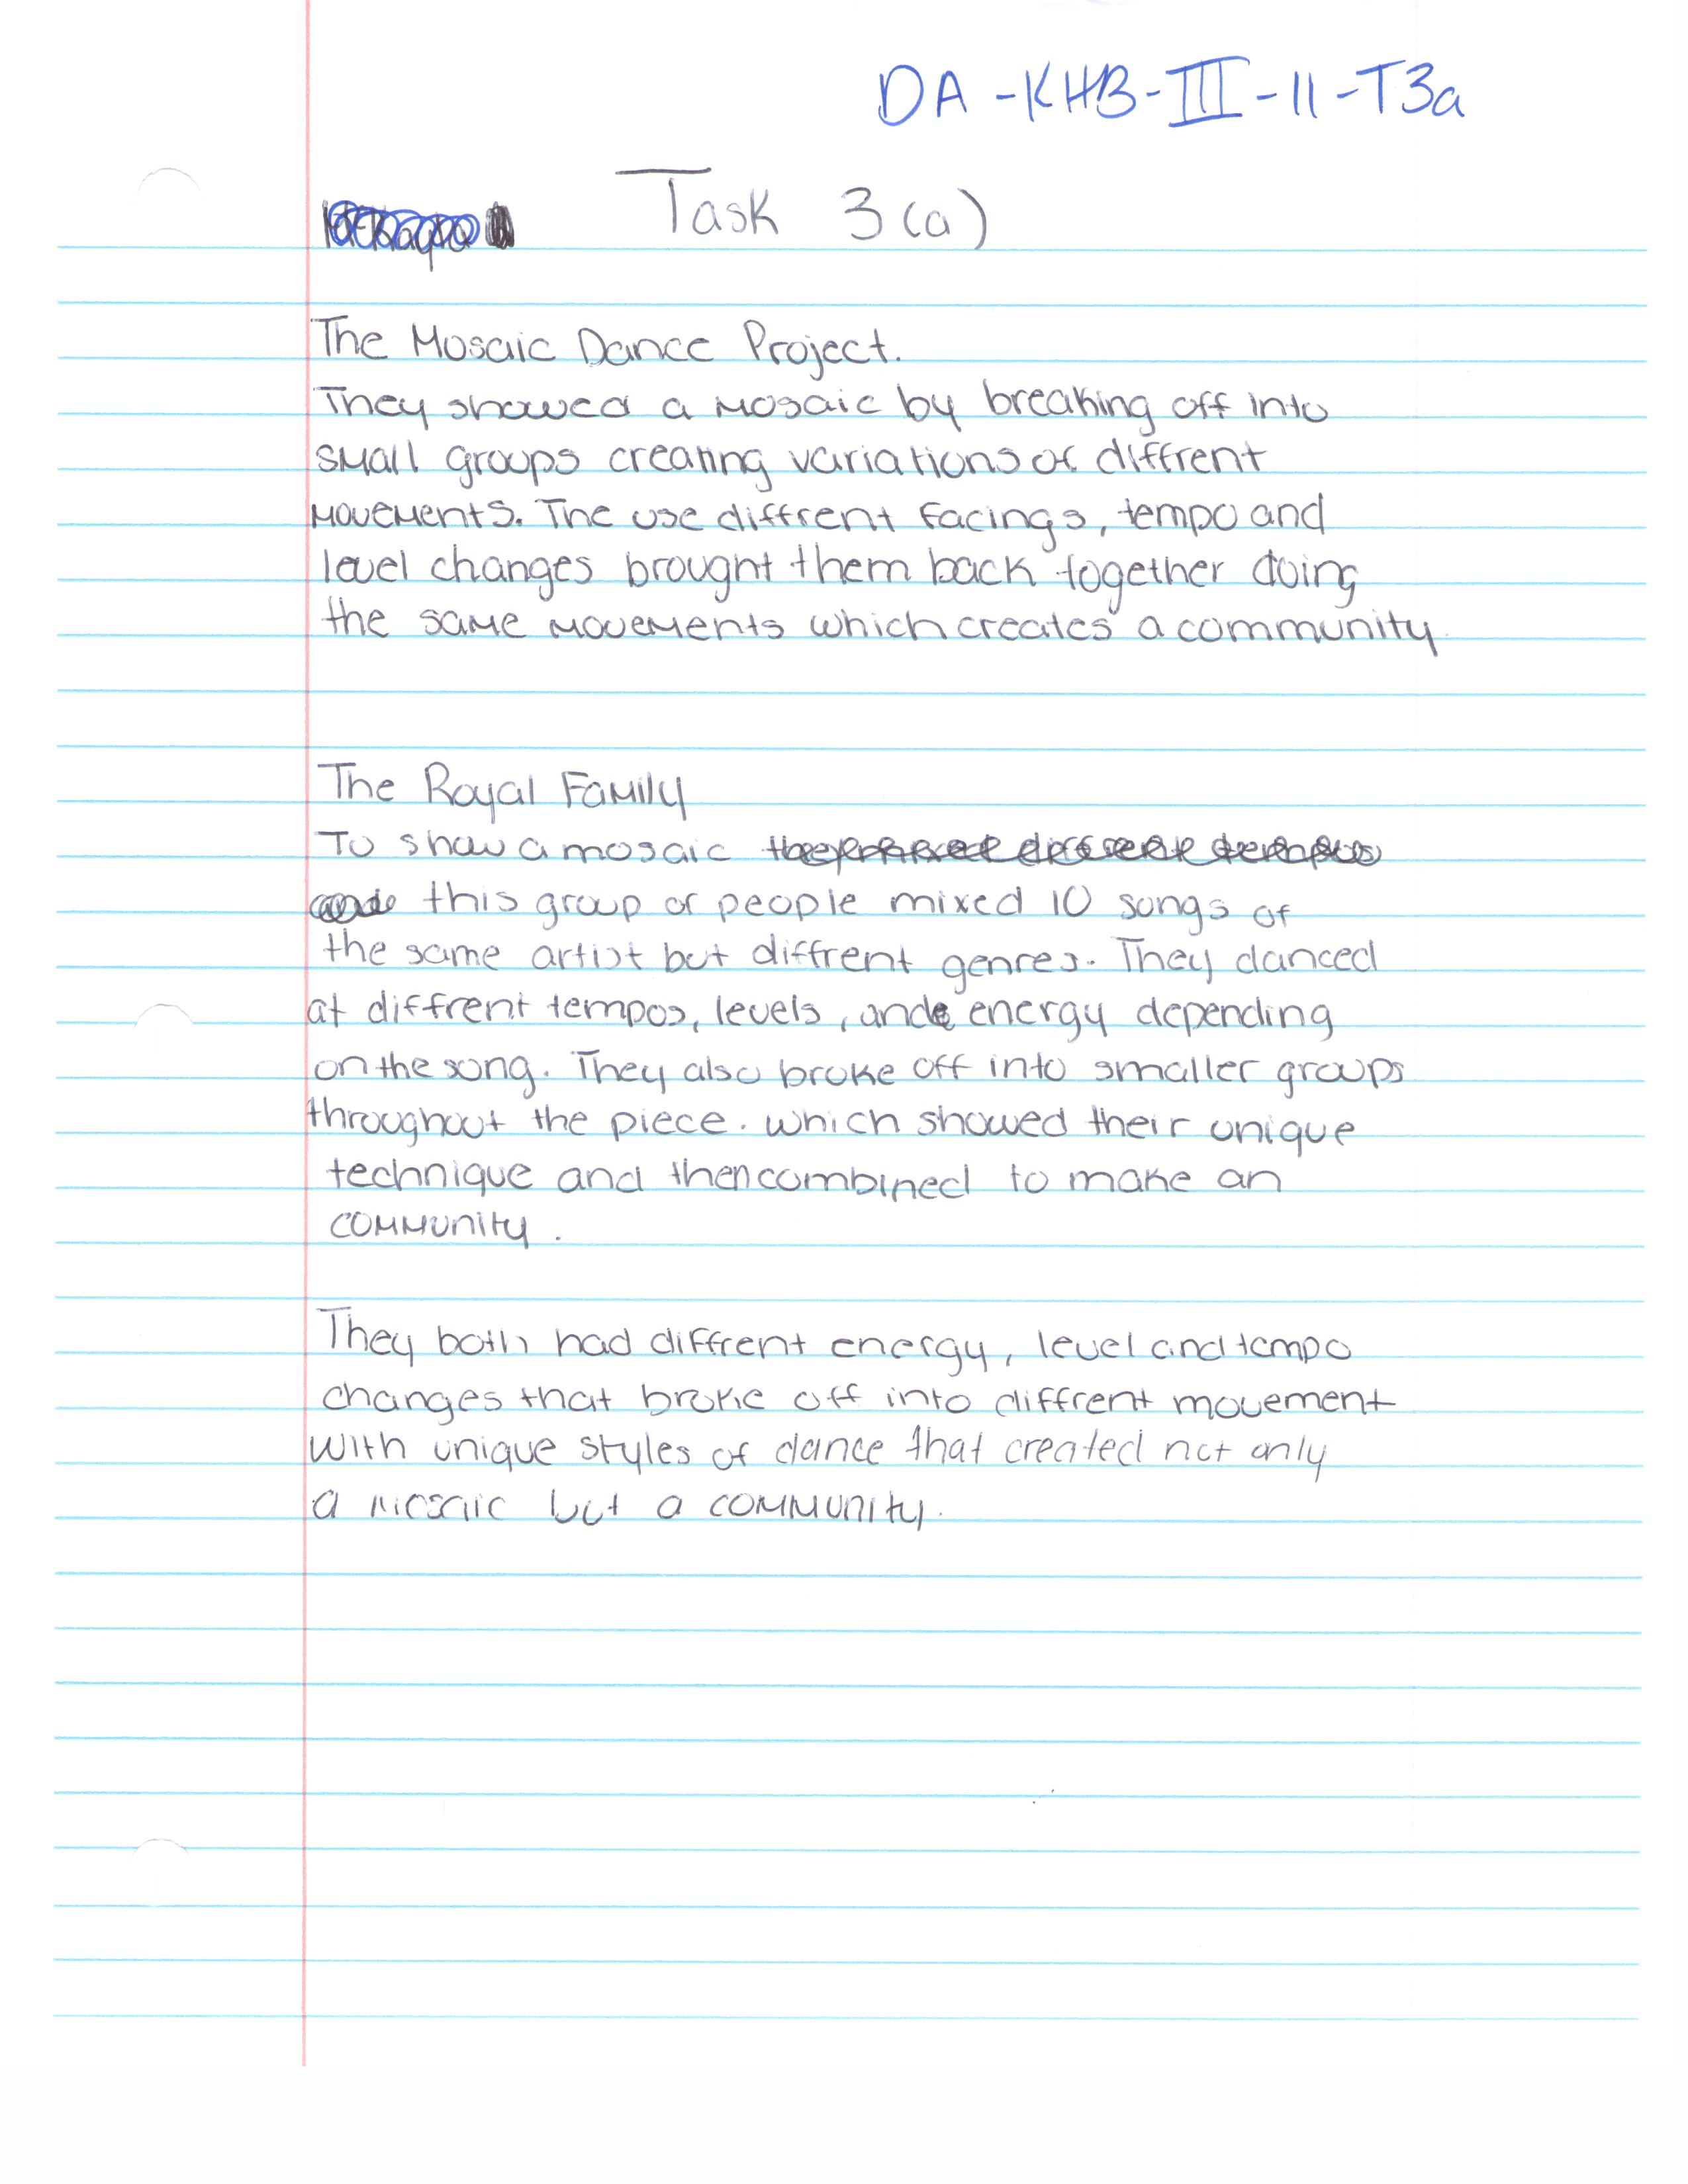 DA-KHB-III-11-T3a
Task 3(a)
The Mosaic Dance Project.
They showed a mosaic by breaking off into
small groups creating variations of diffrent
movements. The use diffrent facings, tempo and
level changes brought them back together doing
the same movements which creates a community
The Royal Family
To show a mosaic
this group of people mixed 10 songs of
the same artist but diffrent genres. They danced
at diffrent tempos, levels, and energy depending
on the song. They also broke off into smaller groups
throughout the piece. which showed their unique
technique and then combined to make an
community.
They both had diffrent energy, level and tempo
changes that broke off into diffrent movement
with unique styles of dance that created not only
a mosaic but a community.